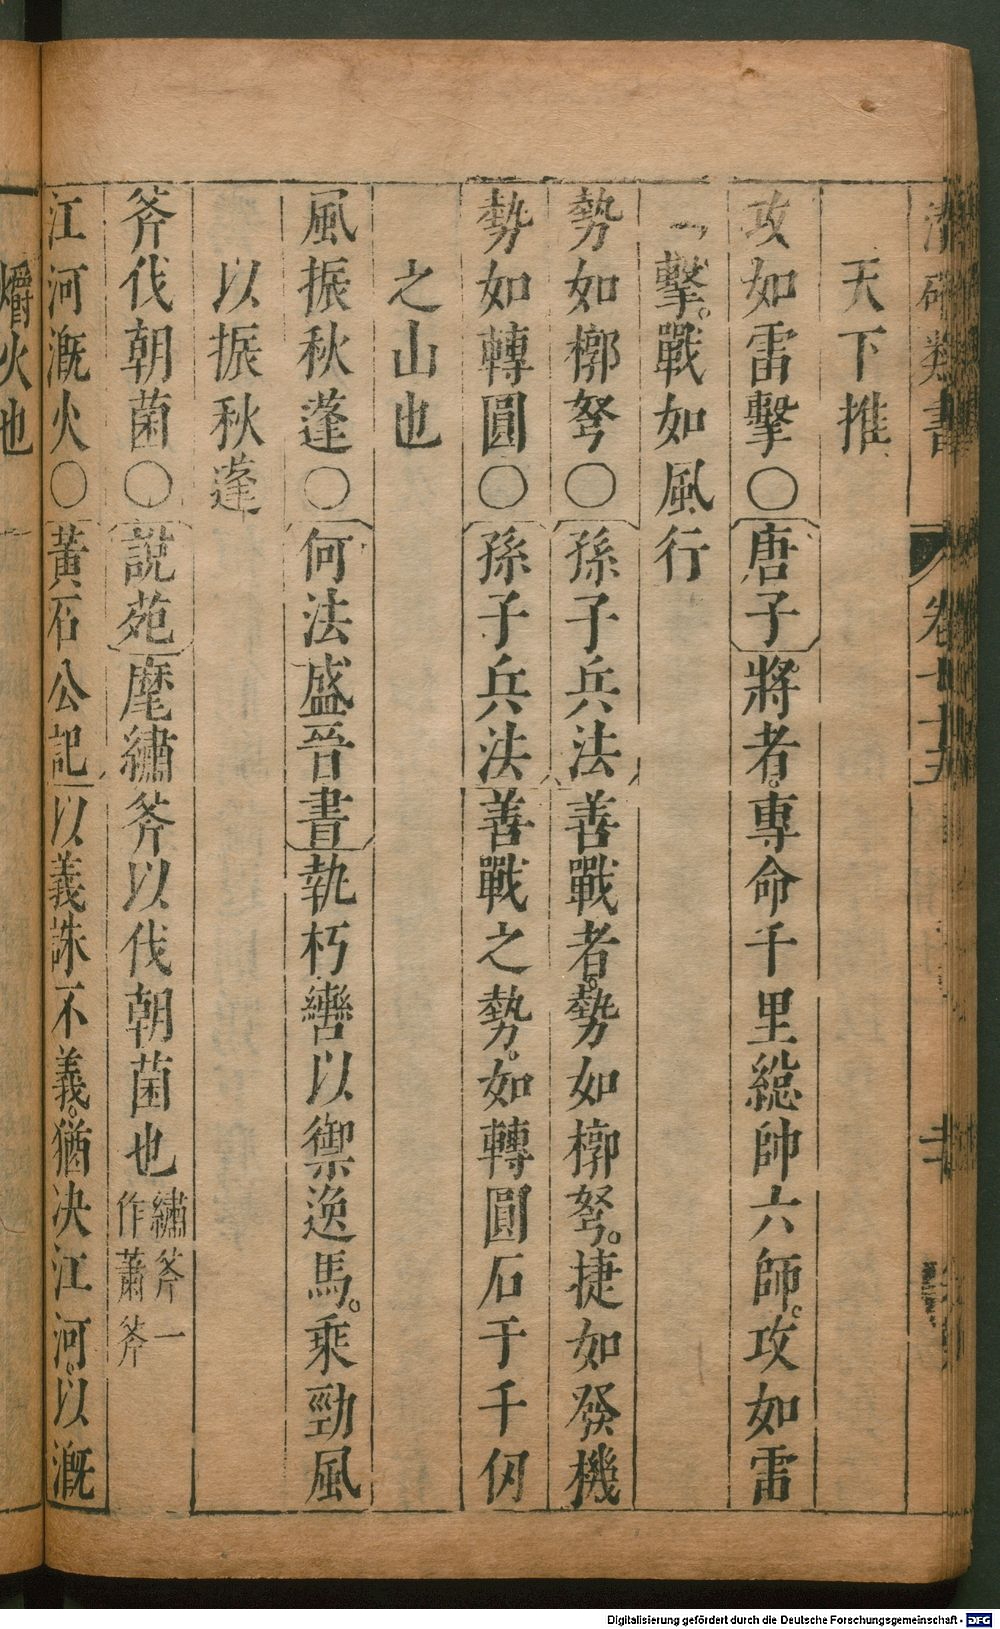 潛確類書 卷七十五
天下推
攻如雷擊〇唐子將者。專命千里緫帥六師。攻如雷
一擊。戰如風行
勢如槨弩〇孫子兵法善戰者。勢如槨弩。捷如發機
勢如轉圓〇孫子兵法善戰之勢。如轉圓石于千仞
之山也
風振秋蓬〇何法盛晉書執朽轡以禦逸馬。乘勁風
以振秋蓬
斧伐朝菌〇說苑麾繡斧以伐朝菌也繡斧一作蕭斧
江河漑火〇黃石公記以義誅不義。猶决江河。以漑
爝火也
Digitalisierung gefördert durch die Deutsche Forschungsgemeinschaft - DFG